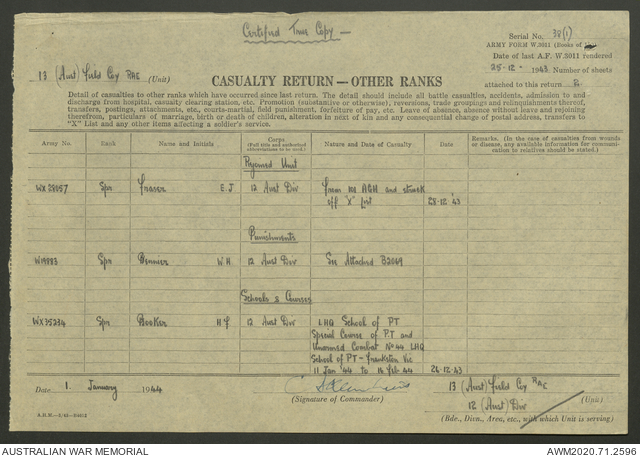 Certified True Copy -
Serial No. 38(1)
ARMY FORM W.3011 (Books of
Date of last A.F. W.3011 rendered
13 (Aust) Field Coy RAE (Unit)
25-12- 1943 Number of sheets
CASUALTY RETURN—OTHER RANKS
attached to this return
Detail of casualties to other ranks which have occurred since last return. The detail should include all battle casualties, accidents, admission to and
discharge from hospital, casualty clearing station, etc. Promotion (substantive or otherwise), reversions, trade groupings and relinquishments thereof,
transfers, postings, attachments, etc., courts-martial, field punishment, forfeiture of pay, etc. Leave of absence, absence without leave and rejoining
therefrom, particulars of marriage, birth or death of children, alteration in next of kin and any consequential change of postal address, transfers to
"X" List and any other items affecting a soldier's service.
Army No. Rank Name and Initials Corps (Full title and authorized abbreviations to be used.) Nature and Date of Casualty Date Remarks. (In the case of casualties from wounds or disease, any available information for communication to relatives should be stated.)
Rejoined Unit
WX28057 Spr Fraser E.J 12 Aust Div From AGH and struck
off "X" List 28-12-43
Punishments
W19883 Spr W.H. 12 Aust Div See Attached B2069
Schools & Courses
WX35234 Spr Booker H J 12 Aust Div LHQ School of PT
Special Course of P.T and
Unarmed Combat No 44 LHQ
School of PT - Frankston Vic
11 Jan '44 to 14 Feb 44 26-12-43
Date 1 January 1944
(Signature of Commander)
13 (Aust) Field Coy RAE (Unit)
12 (Aust) Div
(Bde., Divn., Area, etc., with which Unit is serving)
AUSTRALIAN WAR MEMORIAL
AWM2020.71.2596